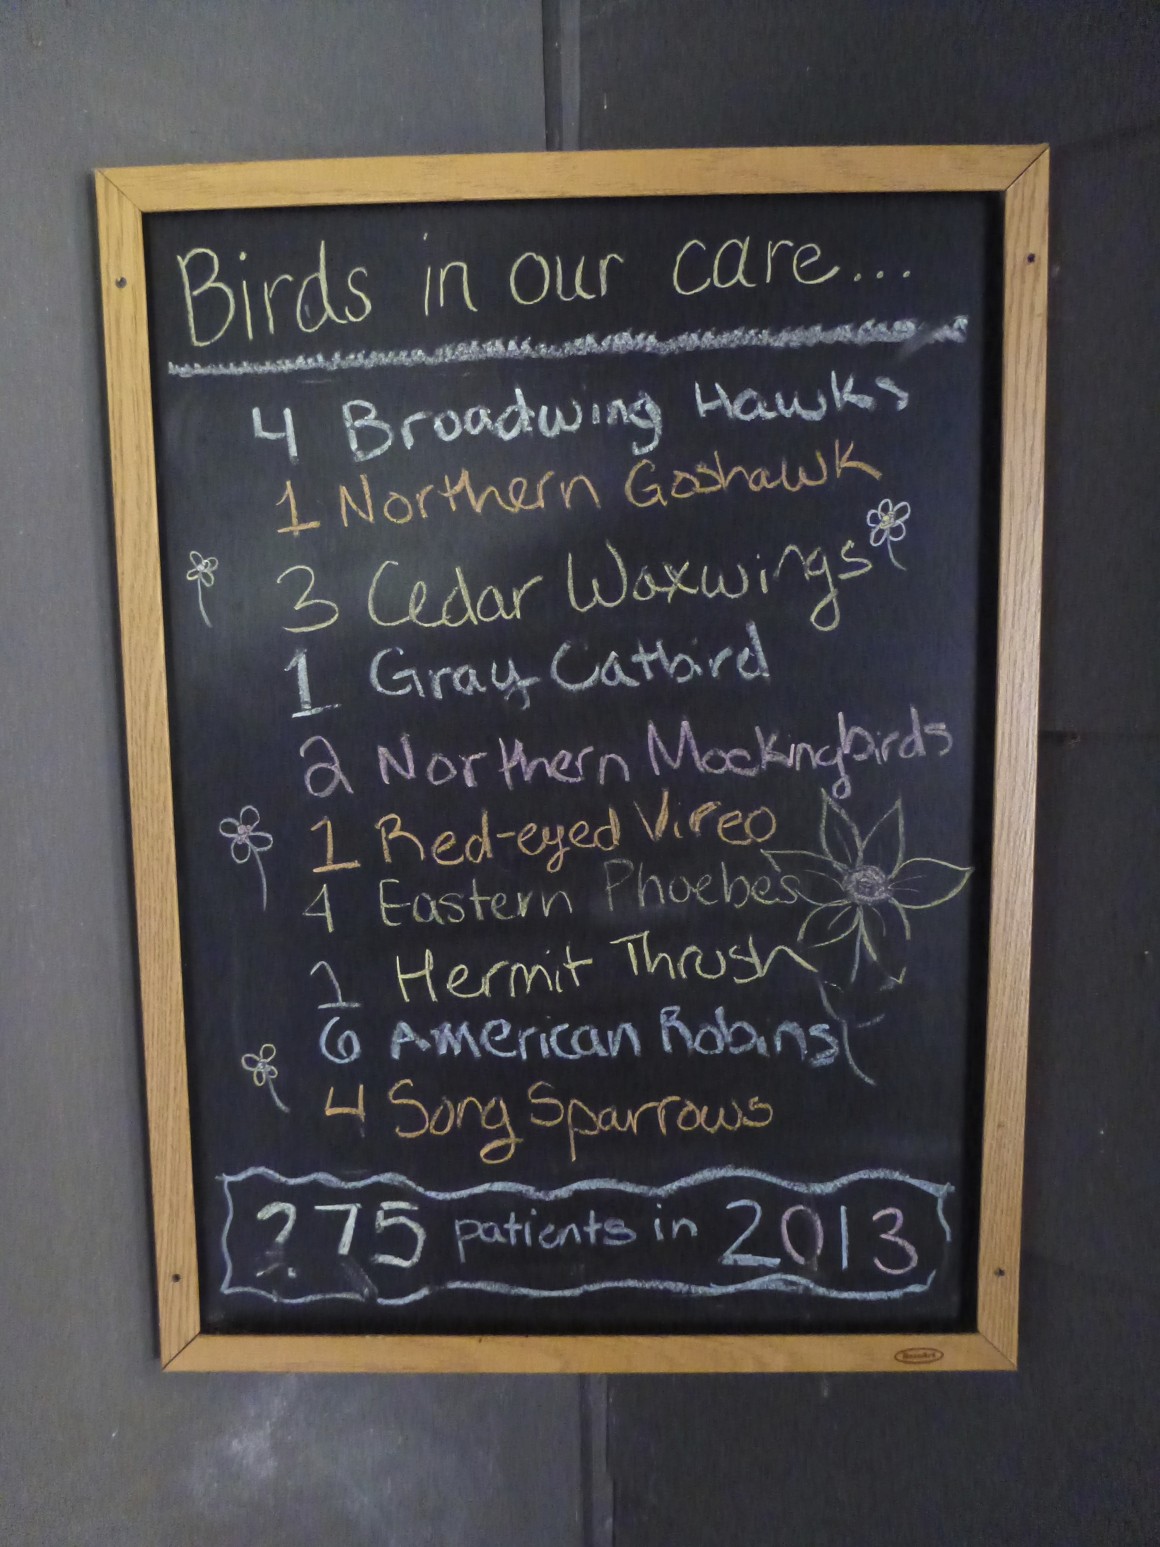 Birds in our care...
4 Broadwing Hawks
1 Northern Goshawk
3 Cedar Waxwings
1 Gray Catbird
2 Northern Mockingbirds
1 Red-eyed Vireo
4 Eastern Phoebes
1 Hermit Thrush
6 American Robins
4 Song Sparrows
275 patients in 2013